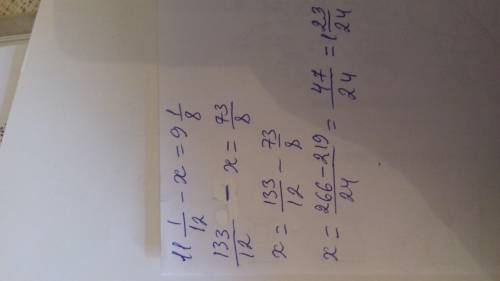 11 1/12 - x = 9 1/8
133/12 - x = 73/8
x = 133/12 - 73/8
x = (266-219)/24 = 47/24 = 1 23/24